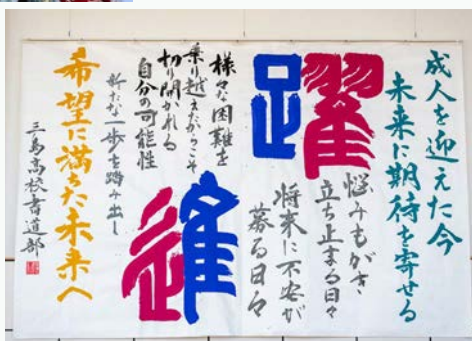 成人を迎えた今
未来に期待を寄せる
躍進
悩みもがき
立ち止まる日々
将来に不安が
募る日々
様々な困難を
乗り越えたからこそ
切り開かれる
自分の可能性
新たな一歩を踏み出し
希望に満ちた未来へ
三島高校書道部